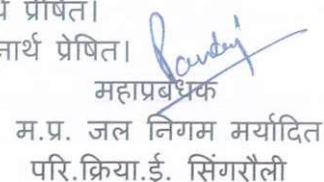 प्रेषित।
नार्थ प्रेषित।
Pandey
महाप्रबंधक
म.प्र. जल निगम मर्यादित
परि.क्रिया.ई. सिंगरौली